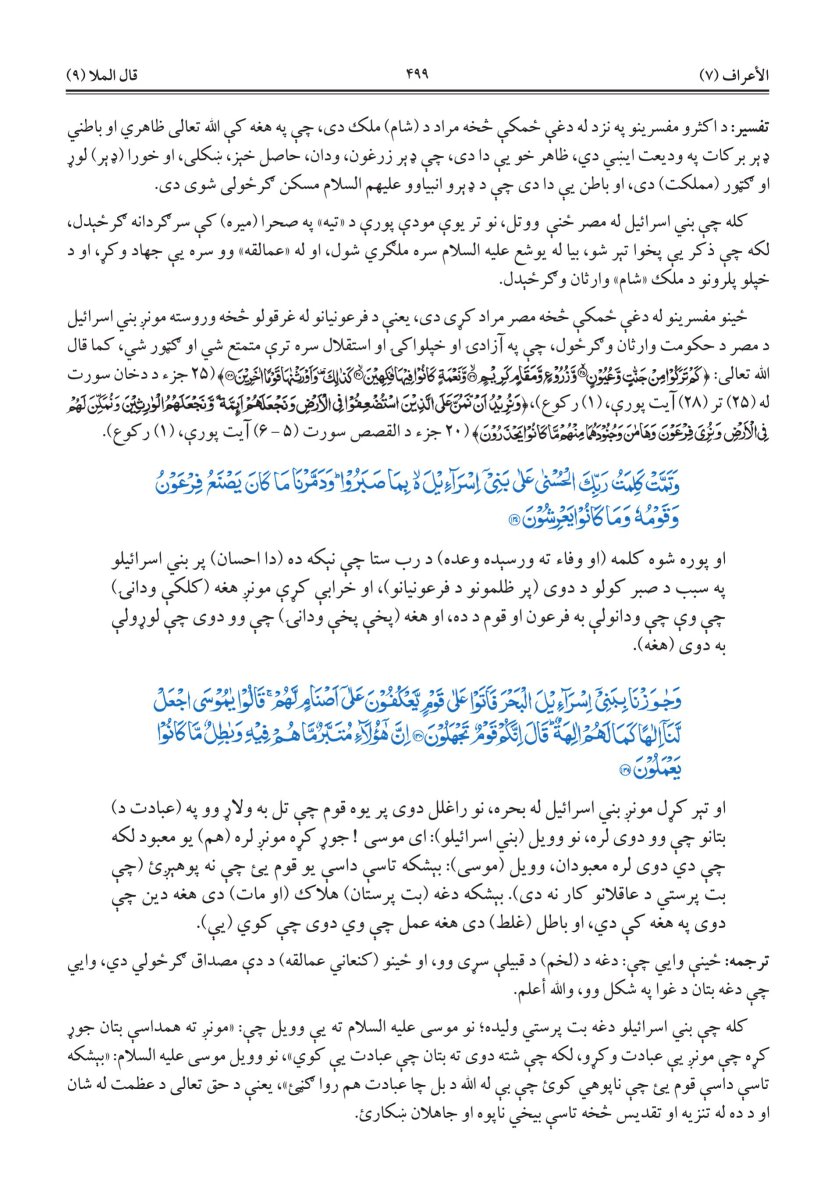 الأعراف (۷) ۴۹۹ قال الملا (۹)
تفسیر: د اکثرو مفسرینو په نزد له دغې ځمکې څخه مراد د (شام) ملک دی، چې په هغه کې الله تعالی ظاهري او باطني
ډېر برکات په ودیعت ایښي دي، ظاهر خو یې دا دی، چې ډېر زرغون، ودان، حاصل خېز، ښکلی، او خورا (ډېر) لوړ
او ګټور (مملکت) دی، او باطن یې دا دی چې د ډېرو انبیاوو علیهم السلام مسکن ګرځولی شوی دی.
کله چې بني اسرائیل له مصر ځنې ووتل، نو تر یوې مودې پورې د «تیه» په صحرا (میره) کې سرګردانه ګرځېدل،
لکه چې ذکر یې پخوا تېر شو، بیا له یوشع علیه السلام سره ملګري شول، او له «عمالقه» وو سره یې جهاد وکړ، او د
خپلو پلرونو د ملک «شام» وارثان وګرځېدل.
ځینو مفسرینو له دغې ځمکې څخه مصر مراد کړی دی، یعنې د فرعونیانو له غرقولو څخه وروسته مونږ بني اسرائیل
د مصر د حکومت وارثان وګرځول، چې په آزادۍ او خپلواکۍ او استقلال سره ترې متمتع شي او ګټور شي، کما قال
الله تعالی: ﴿كَمْ تَرَكُوْا مِنْ جَنّٰتٍ وَّعُيُوْنٍ ۙ وَّزُرُوْعٍ وَّمَقَامٍ كَرِيْمٍ ۙ وَّنَعْمَةٍ كَانُوْا فِيْهَا فٰكِهِيْنَ ۙ كَذٰلِكَ ۣ وَاَوْرَثْنٰهَا قَوْمًا اٰخَرِيْنَ﴾ (۲۵ جزء د دخان سورت
له (۲۵) تر (۲۸) آیت پورې، (۱) رکوع)، ﴿وَنُرِيْدُ اَنْ نَّمُنَّ عَلَى الَّذِيْنَ اسْتُضْعِفُوْا فِي الْاَرْضِ وَنَجْعَلَهُمْ اَىِٕمَّةً وَّنَجْعَلَهُمُ الْوٰرِثِيْنَ ۙ وَنُمَكِّنَ لَهُمْ
فِي الْاَرْضِ وَنُرِيَ فِرْعَوْنَ وَهَامٰنَ وَجُنُوْدَهُمَا مِنْهُمْ مَّا كَانُوْا يَحْذَرُوْنَ﴾ (۲۰ جزء د القصص سورت (۵ – ۶) آیت پورې، (۱) رکوع).
وَتَمَّتْ كَلِمَتُ رَبِّكَ الْحُسْنٰى عَلٰى بَنِيْٓ اِسْرَآءِيْلَ ۙ بِمَا صَبَرُوْا ۭ وَدَمَّرْنَا مَا كَانَ يَصْنَعُ فِرْعَوْنُ
وَقَوْمُهٗ وَمَا كَانُوْا يَعْرِشُوْنَ
او پوره شوه کلمه (او وفاء ته ورسېده وعده) د رب ستا چې نېکه ده (دا احسان) پر بني اسرائیلو
په سبب د صبر کولو د دوی (پر ظلمونو د فرعونیانو)، او خرابې کړې مونږ هغه (کلکې ودانۍ)
چې وې چې ودانولې به فرعون او قوم د ده، او هغه (پخې پخې ودانۍ) چې وو دوی چې لوړولې
به دوی (هغه).
وَجٰوَزْنَا بِبَنِيْٓ اِسْرَآءِيْلَ الْبَحْرَ فَاَتَوْا عَلٰى قَوْمٍ يَّعْكُفُوْنَ عَلٰٓى اَصْنَامٍ لَّهُمْ ۚ قَالُوْا يٰمُوْسَى اجْعَلْ
لَّنَآ اِلٰهًا كَمَا لَهُمْ اٰلِهَةٌ ۭ قَالَ اِنَّكُمْ قَوْمٌ تَجْهَلُوْنَ ۝ اِنَّ هٰٓؤُلَاۗءِ مُتَبَّرٌ مَّا هُمْ فِيْهِ وَبٰطِلٌ مَّا كَانُوْا
يَعْمَلُوْنَ
او تېر کړل مونږ بني اسرائیل له بحره، نو راغلل دوی پر یوه قوم چې تل به ولاړ وو په (عبادت د)
بتانو چې وو دوی لره، نو وویل (بني اسرائیلو): ای موسی ! جوړ کړه مونږ لره (هم) یو معبود لکه
چې دي دوی لره معبودان، وویل (موسی): بېشکه تاسې داسې یو قوم یئ چې نه پوهېږئ (چې
بت پرستي د عاقلانو کار نه دی). بېشکه دغه (بت پرستان) هلاک (او مات) دی هغه دین چې
دوی په هغه کې دي، او باطل (غلط) دی هغه عمل چې وي دوی چې کوي (یې).
ترجمه: ځینې وایي چې: دغه د (لخم) د قبیلې سړی وو، او ځینو (کنعاني عمالقه) د دې مصداق ګرځولي دي، وایي
چې دغه بتان د غوا په شکل وو، والله أعلم.
کله چې بني اسرائیلو دغه بت پرستي ولیده؛ نو موسی علیه السلام ته یې وویل چې: «مونږ ته همداسې بتان جوړ
کړه چې مونږ یې عبادت وکړو، لکه چې شته دوی ته بتان چې عبادت یې کوي»، نو وویل موسی علیه السلام: «بېشکه
تاسې داسې قوم یئ چې ناپوهي کوئ چې بې له الله د بل چا عبادت هم روا ګڼئ»، یعنې د حق تعالی د عظمت له شان
او د ده له تنزیه او تقدیس څخه تاسې بیخي ناپوه او جاهلان ښکارئ.